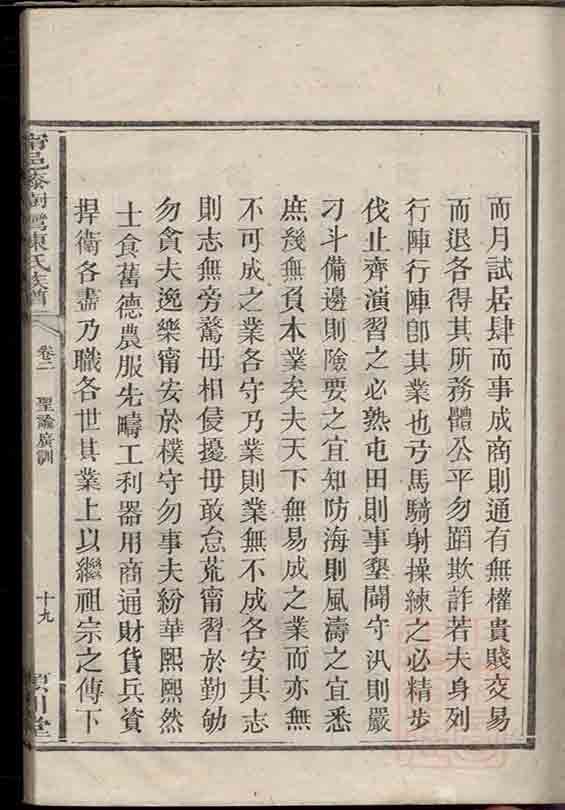 而月試居肆而事成商則通有無權貴賤交易
而退各得其所務體公平勿蹈欺詐若夫身列
行陣行陣卽其業也弓馬騎射操練之必精步
伐止齊演習之必熟屯田則事墾闢守汛則嚴
刁斗備邊則險要之宜知防海則風濤之宜悉
庶幾無負本業矣夫天下無易成之業而亦無
不可成之業各守乃業則業無不成各安其志
則志無旁騖毋相侵擾毋敢怠荒甯習於勤劬
勿貪夫逸樂甯安於樸守勿事夫紛華熙熙然
士食舊德農服先疇工利器用商通財貨兵資
捍衛各盡乃職各世其業上以繼祖宗之傳下
甯邑
陳氏族譜
卷二
聖諭廣訓
十九
川堂